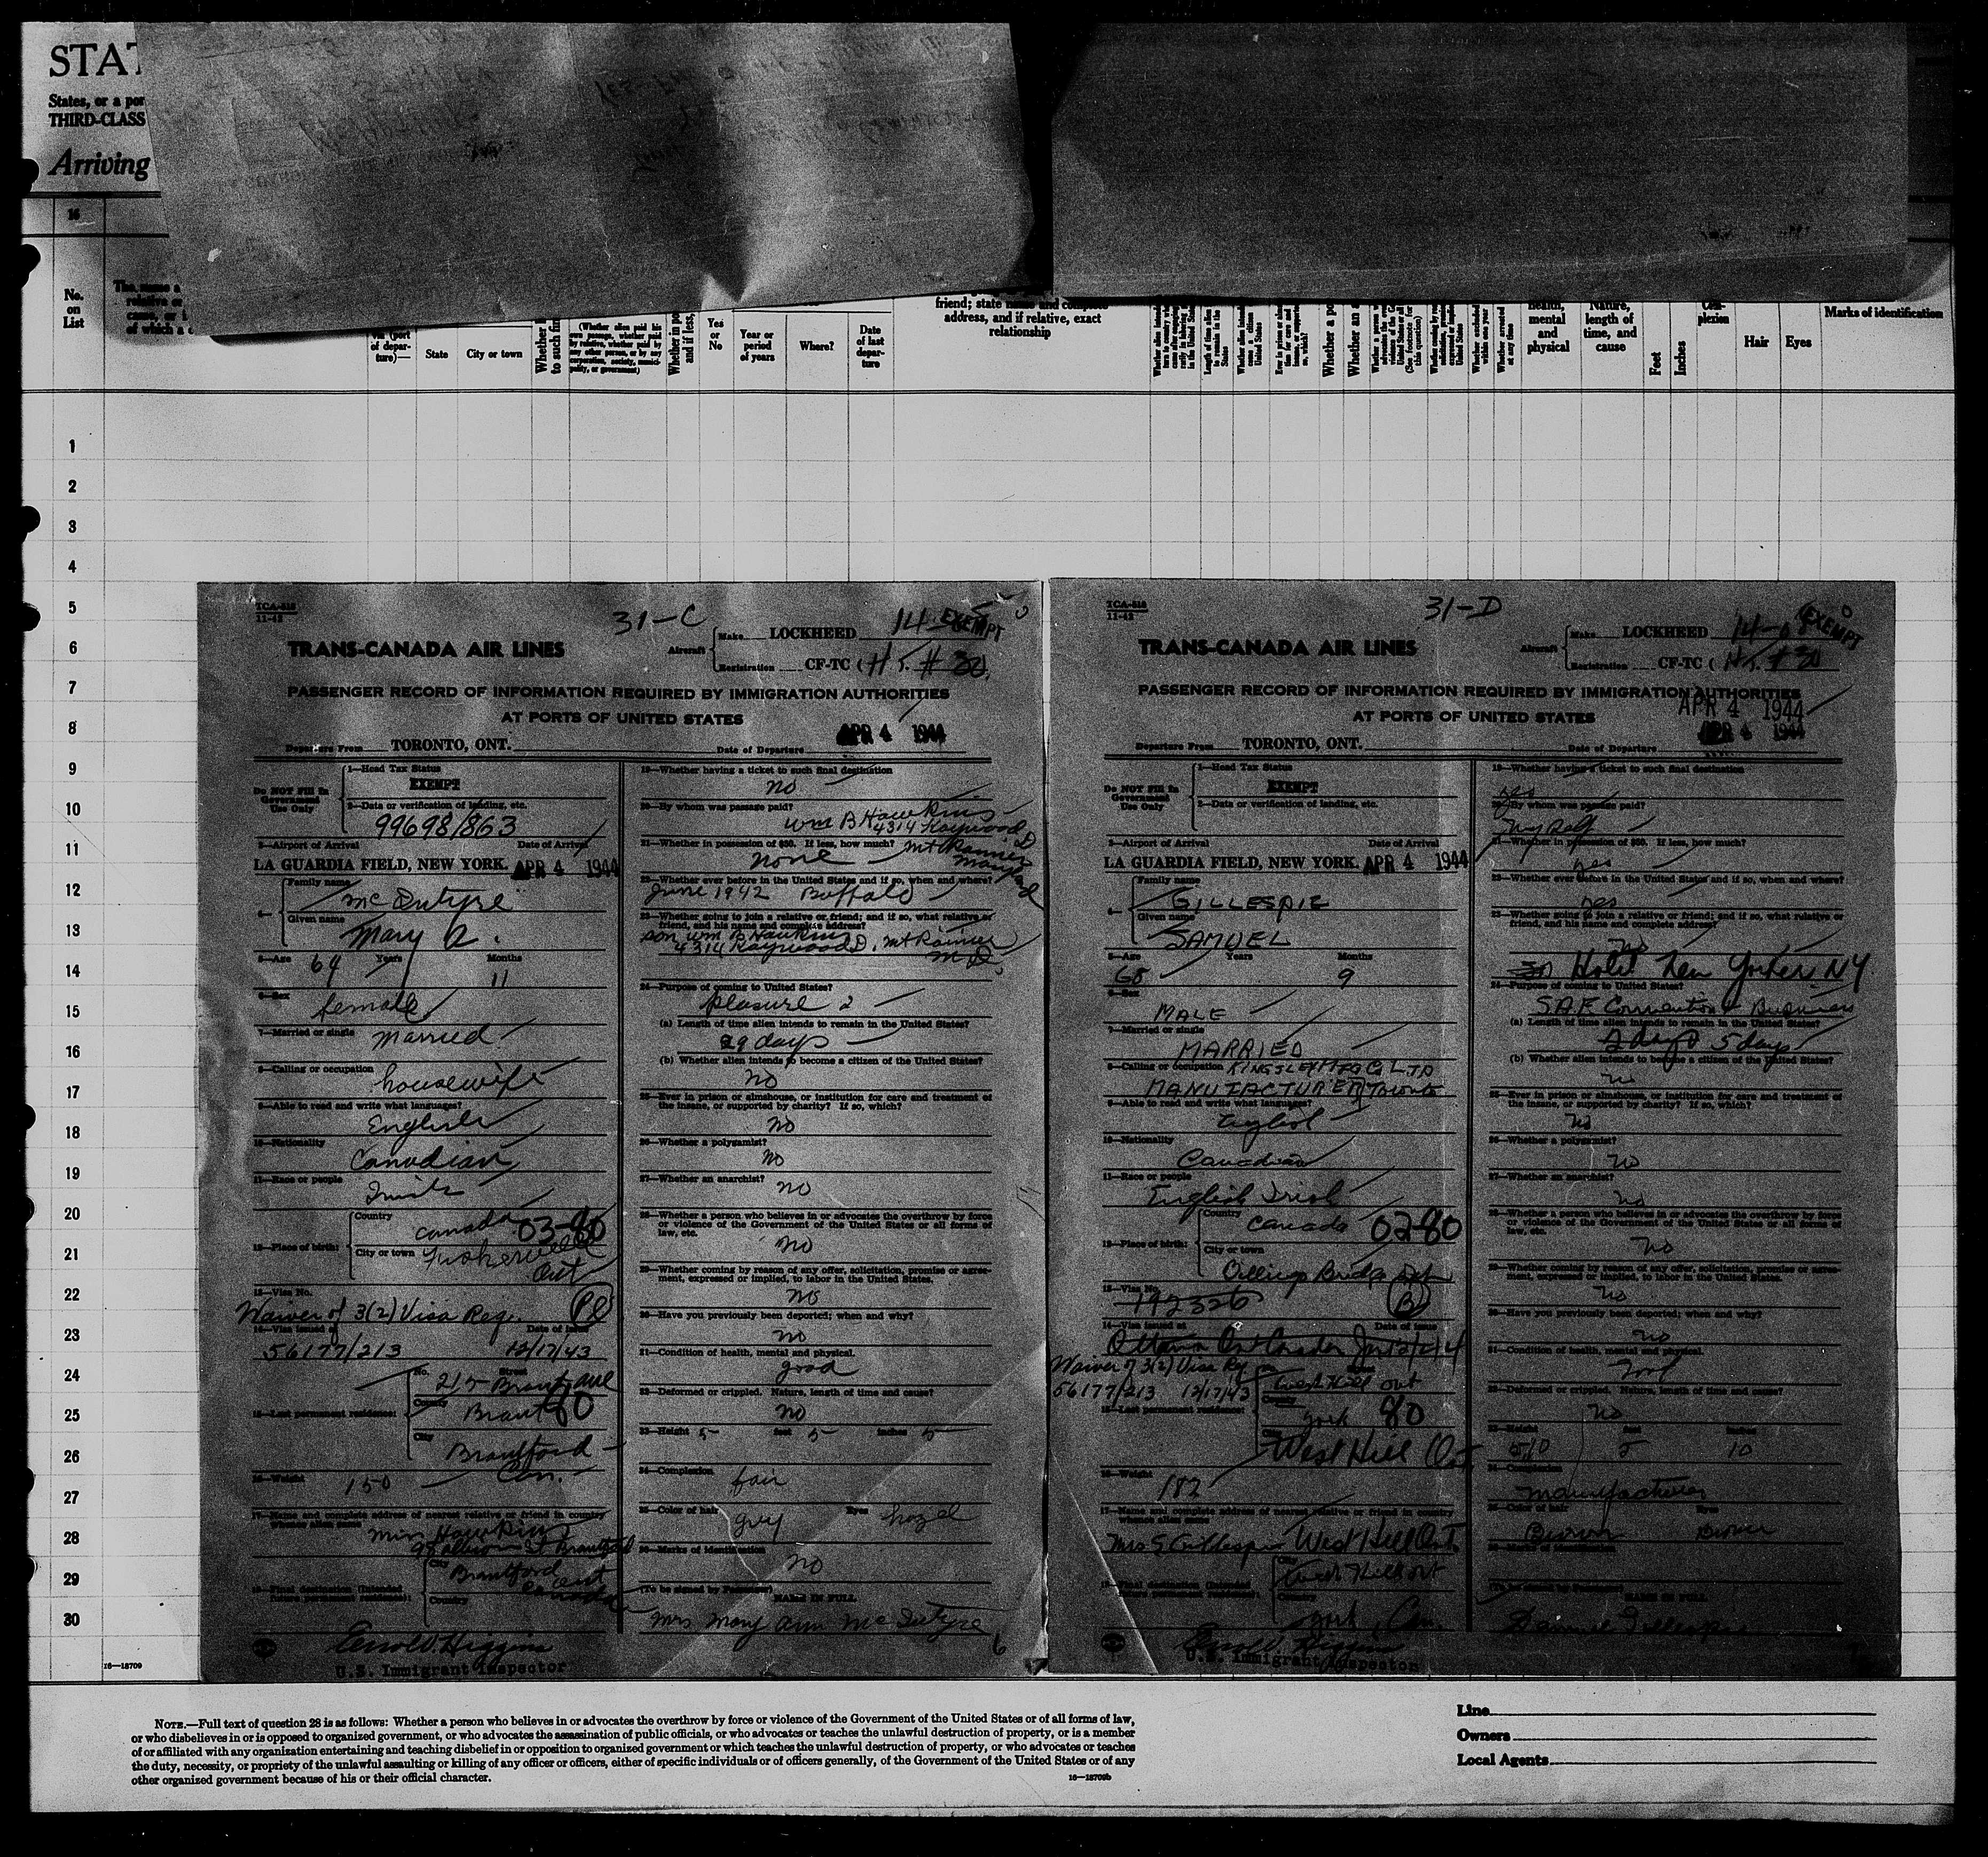 STAT
States, or a por
THIRD-CLASS
Arriving
16
No.
on
List
of depar-
ture)—
State
City or town
Whether
to such fin
(Whether alien paid his
own passage, whether paid
by relative, whether paid by
any other person, or by any
corporation, society, munici-
pality, or government)
and if less,
Yes
or
No
Year or
period
of years
Where?
Date
of last
depar-
ture
friend; state name and complete
address, and if relative, exact
relationship
mental
and
physical
Nature,
length of
time, and
cause
Feet
Inches
plexion
Hair
Eyes
Marks of identification
1
2
3
4
5
6
7
8
9
10
11
12
13
14
15
16
17
18
19
20
21
22
23
24
25
26
27
28
29
30
16—18709
TCA-518
11-42
31-C
EXEMPT
TRANS-CANADA AIR LINES
Aircraft
Make LOCKHEED 14-
Registration CF-TC (H T. # 30.
PASSENGER RECORD OF INFORMATION REQUIRED BY IMMIGRATION AUTHORITIES
AT PORTS OF UNITED STATES
Departure From TORONTO, ONT. Date of Departure APR 4 1944
Do NOT Fill In
Government
Use Only
1—Head Tax Status
EXEMPT
2—Data or verification of landing, etc.
99698/863
3—Airport of Arrival Date of Arrival
LA GUARDIA FIELD, NEW YORK. APR 4 1944
4—
Family name
McIntyre
Given name
Mary A.
5—Age 64 Years 11 Months
6—Sex
female
7—Married or single
married
8—Calling or occupation
housewife
9—Able to read and write what languages?
English
10—Nationality
Canadian
11—Race or people
Irish
12—Place of birth:
Country
Canada 03-80
City or town
Ont
13—Visa No.
Waiver of 3(2) Visa Req.
14—Visa issued at Date of Issue
56177/213 12/17/43
15—Last permanent residence:
No. Street
215 Brant ave
County
Brant 80
City
Brantford
Can.
16—Weight 150
17—Name and complete address of nearest relative or friend in country
whence alien came
Hawkins
St Brantford
18—Final destination (Intended
future permanent residence):
City
Brantford Ont
Country
Canada
Errol D. Higgins
U.S. Immigrant Inspector
19—Whether having a ticket to such final destination
no
20—By whom was passage paid?
Wm B Hawkins
4314 Kaywood D
21—Whether in possession of $50. If less, how much? Mt Rainier
none Maryland
22—Whether ever before in the United States and if so, when and where?
June 1942 Buffalo
23—Whether going to join a relative or friend; and if so, what relative or
friend, and his name and complete address?
son Wm B Hawkins
4314 Kaywood D. Mt Rainier
M.D.
24—Purpose of coming to United States?
pleasure 2
(a) Length of time alien intends to remain in the United States?
29 days
(b) Whether alien intends to become a citizen of the United States?
no
25—Ever in prison or almshouse, or institution for care and treatment of
the insane, or supported by charity? If so, which?
no
26—Whether a polygamist?
no
27—Whether an anarchist?
no
28—Whether a person who believes in or advocates the overthrow by force
or violence of the Government of the United States or all forms of
law, etc.
no
29—Whether coming by reason of any offer, solicitation, promise or agree-
ment, expressed or implied, to labor in the United States.
no
30—Have you previously been deported; when and why?
no
31—Condition of health, mental and physical.
good
32—Deformed or crippled. Nature, length of time and cause?
no
33—Height 5- feet 5- inches 5-
34—Complexion
fair
35—Color of hair Eyes
grey hazel
36—Marks of Identification
no
(To be signed by Passenger) NAME IN FULL
Mrs Mary Ann McIntyre
6
TCA-518
11-42
31-D
EXEMPT
TRANS-CANADA AIR LINES
Aircraft
Make LOCKHEED 14-08
Registration CF-TC ( H T. # 30
PASSENGER RECORD OF INFORMATION REQUIRED BY IMMIGRATION AUTHORITIES
APR 4 1944
AT PORTS OF UNITED STATES
Departure From TORONTO, ONT. Date of Departure APR 4 1944
Do NOT Fill In
Government
Use Only
1—Head Tax Status
EXEMPT
2—Data or verification of landing, etc.
3—Airport of Arrival Date of Arrival
LA GUARDIA FIELD, NEW YORK. APR 4 1944
4—
Family name
GILLESPIE
Given name
SAMUEL
5—Age 68 Years 9 Months
6—Sex
MALE
7—Married or single
MARRIED
8—Calling or occupation KINGSLEY MFG Co LTD
MANUFACTURER Toronto
9—Able to read and write what languages?
English
10—Nationality
Canadian
11—Race or people
English Irish
12—Place of birth:
Country
Canada 02-80
City or town
Bridge Ont
13—Visa No.
192326
14—Visa issued at Date of Issue
Ottawa Ont Canada
Waiver of 3(2) Visa Req
56177/213 12/17/43
15—Last permanent residence:
West Hill Ont
County
York 80
City
West Hill Ont
16—Weight
182
17—Name and complete address of nearest relative or friend in country
whence alien came
Mrs S Gillespie West Hill Ont.
18—Final destination (Intended
future permanent residence):
City
West Hill Ont
Country
York, Can.
Errol D. Higgins
U.S. Immigrant Inspector
19—Whether having a ticket to such final destination
yes
20—By whom was passage paid?
myself
21—Whether in possession of $50. If less, how much?
yes
22—Whether ever before in the United States and if so, when and where?
yes
23—Whether going to join a relative or friend; and if so, what relative or
friend, and his name and complete address?
no
Hotel New Yorker NY
24—Purpose of coming to United States?
S.A.E Convention & Business
(a) Length of time alien intends to remain in the United States?
2 days 5 days
(b) Whether alien intends to become a citizen of the United States?
no
25—Ever in prison or almshouse, or institution for care and treatment of
the insane, or supported by charity? If so, which?
no
26—Whether a polygamist?
no
27—Whether an anarchist?
no
28—Whether a person who believes in or advocates the overthrow by force
or violence of the Government of the United States or all forms of
law, etc.
no
29—Whether coming by reason of any offer, solicitation, promise or agree-
ment, expressed or implied, to labor in the United States.
no
30—Have you previously been deported; when and why?
no
31—Condition of health, mental and physical.
good
32—Deformed or crippled. Nature, length of time and cause?
no
33—Height feet inches
5/10 5 10
34—Complexion
Manufacturer
35—Color of hair Eyes
Brown Brown
36—Marks of Identification
(To be signed by Passenger) NAME IN FULL
Samuel Gillespie
NOTE.—Full text of question 28 is as follows: Whether a person who believes in or advocates the overthrow by force or violence of the Government of the United States or of all forms of law,
or who disbelieves in or is opposed to organized government, or who advocates the assassination of public officials, or who advocates or teaches the unlawful destruction of property, or is a member
of or affiliated with any organization entertaining and teaching disbelief in or opposition to organized government or which teaches the unlawful destruction of property, or who advocates or teaches
the duty, necessity, or propriety of the unlawful assaulting or killing of any officer or officers, either of specific individuals or of officers generally, of the Government of the United States or of any
other organized government because of his or their official character.
16—18709b
Line
Owners
Local Agents